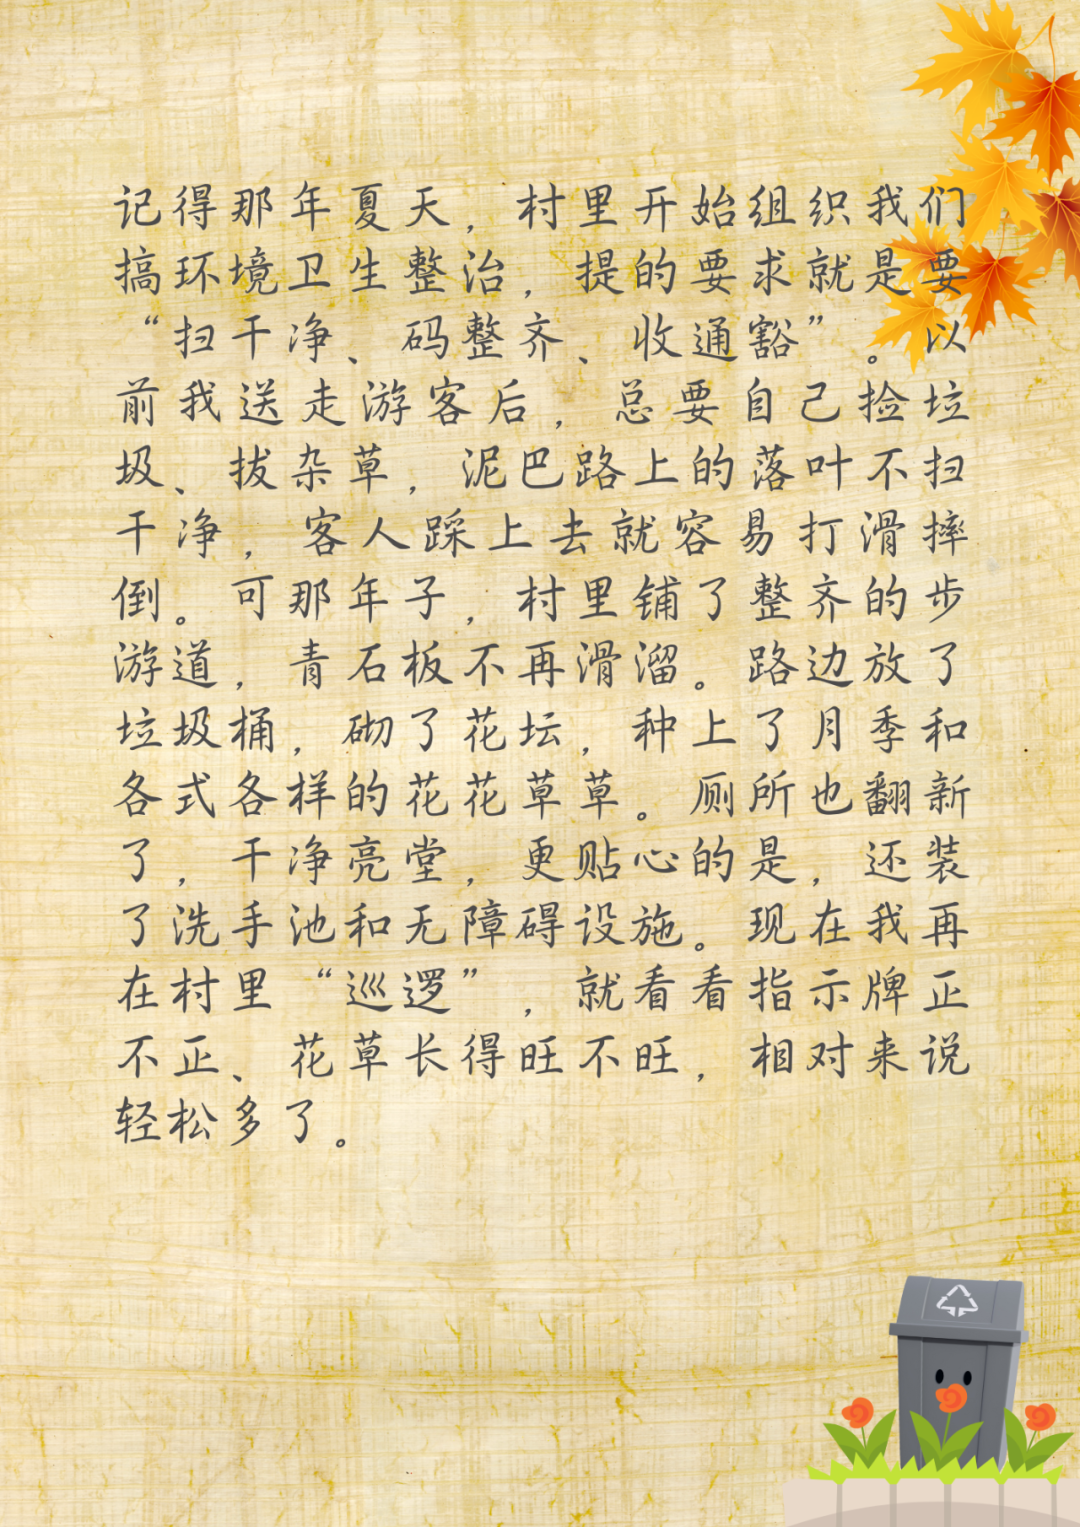 记得那年夏天，村里开始组织我们
搞环境卫生整治，提的要求就是要
“扫干净、码整齐、收通豁”。以
前我送走游客后，总要自己捡垃
圾、拔杂草，泥巴路上的落叶不扫
干净，客人踩上去就容易打滑摔
倒。可那年子，村里铺了整齐的步
游道，青石板不再滑溜。路边放了
垃圾桶，砌了花坛，种上了月季和
各式各样的花花草草。厕所也翻新
了，干净亮堂，更贴心的是，还装
了洗手池和无障碍设施。现在我再
在村里“巡逻”，就看看指示牌正
不正、花草长得旺不旺，相对来说
轻松多了。